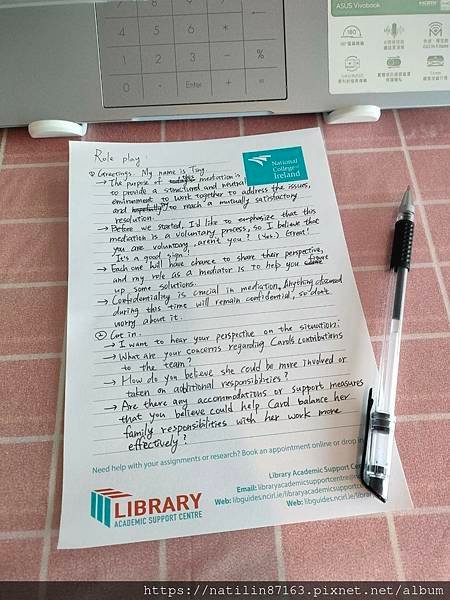 ASUS Vivobook
HDMI
180°
%
Enter
Role play:
① Greetings. My name is Tiny.
→ The purpose of today's this mediation is
to provide a structured and neutral
environment to work together to address the issues,
and hopefully to reach a mutually satisfactory
resolution.
→ Before we started, I'd like to emphasize that this
mediation is a voluntary process, so I believe that
you are voluntary, aren't you? (Yes.) Great!
It's a good sign!
→ Each one will have chance to share their perspective,
and my role as a mediator is to help you figure
up some solutions.
→ Confidentiality is crucial in mediation, Anything shared
during this time will remain confidential, so don't
worry about it.
② Cut in.
→ I want to hear your perspective on the situation:
→ What are your concerns regarding Carol's contributions
to the team?
→ How do you believe she could be more involved or
taken on additional responsibilities?
→ Are there any accommodations or support measures
that you believe could help Carol balance her
family responsibilities with her work more
effectively?
National
College of
Ireland
Need help with your assignments or research? Book an appointment online or drop in
Library Academic Support Cent
Email: libraryacademicsupportcentre@
Web: libguides.ncirl.ie/libraryacademics
Web: libguides.ncirl.ie/
LIBRARY
ACADEMIC SUPPORT CENTRE
https://natilin87163.pixnet.net/album